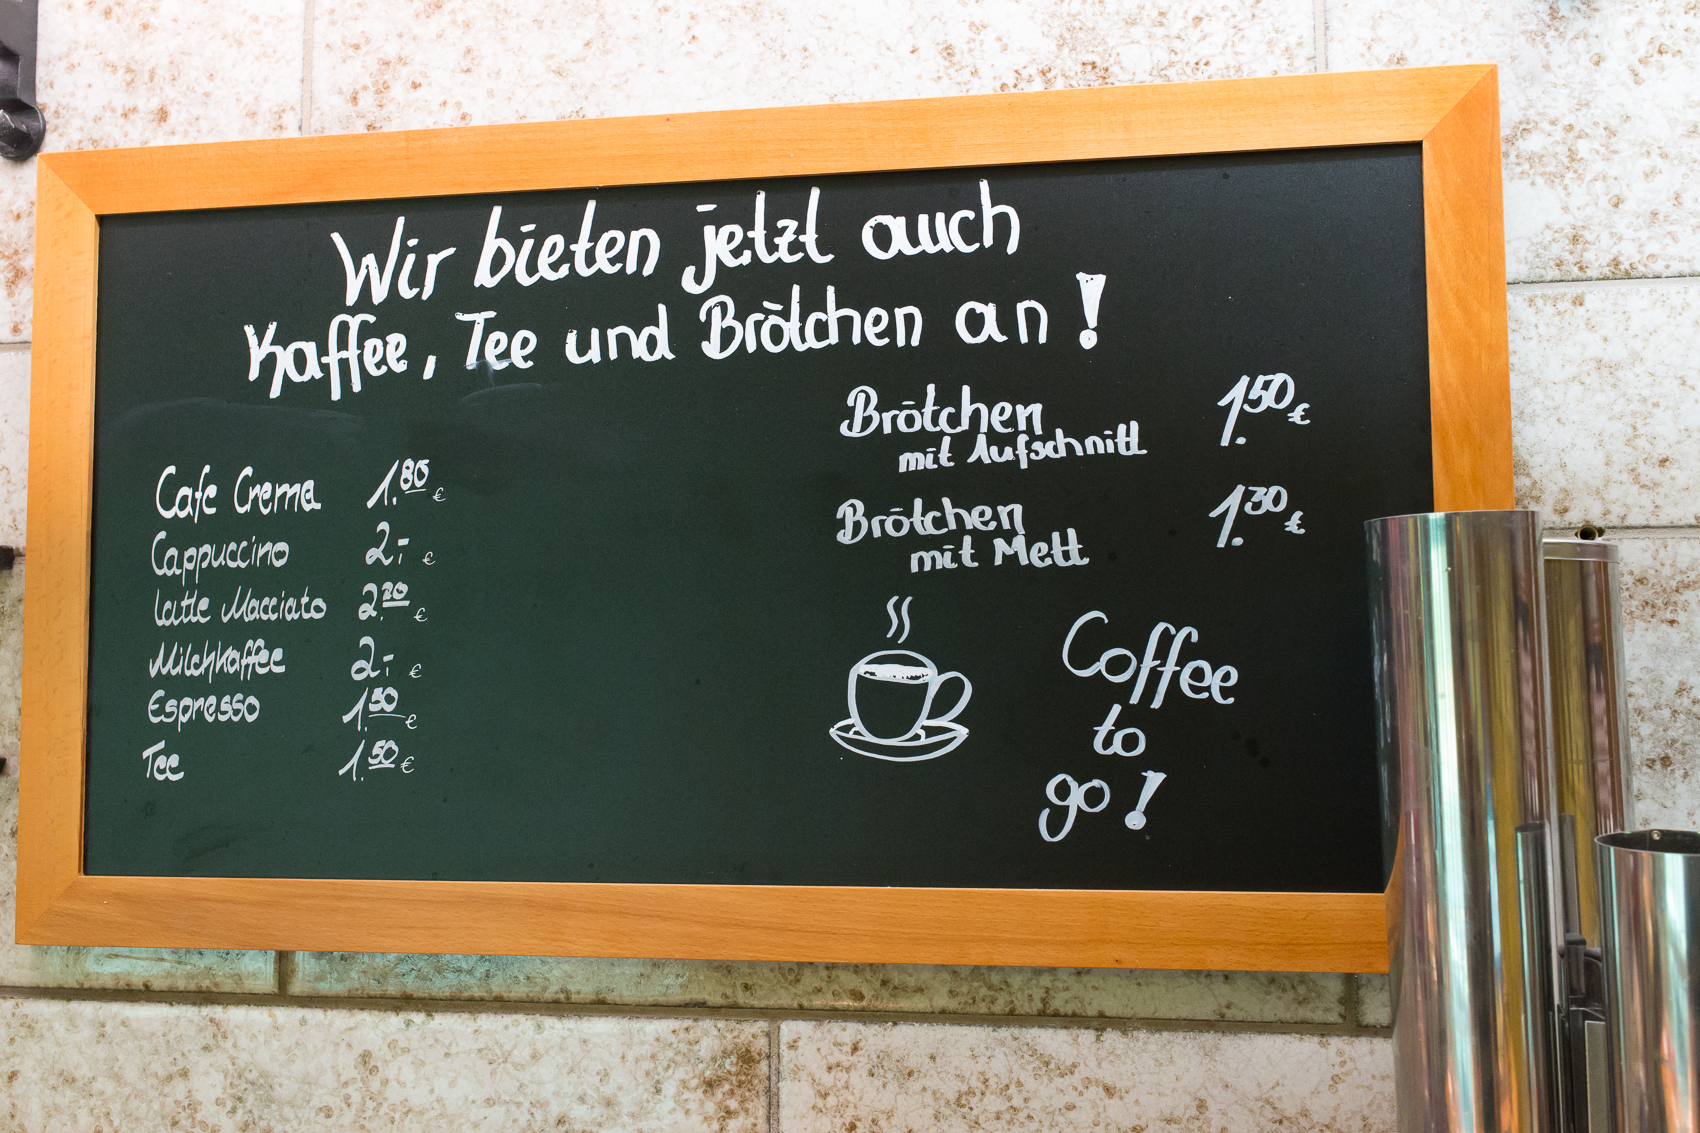 Wir bieten jetzt auch
Kaffee, Tee und Brötchen an!
Cafe Crema 1.80 €
Cappuccino 2,- €
Latte Macciato 2.20 €
Milchkaffee 2,- €
Espresso 1.50 €
Tee 1.50 €
Brötchen 1.50 €
mit Aufschnitt
Brötchen 1.30 €
mit Mett
Coffee
to
go!